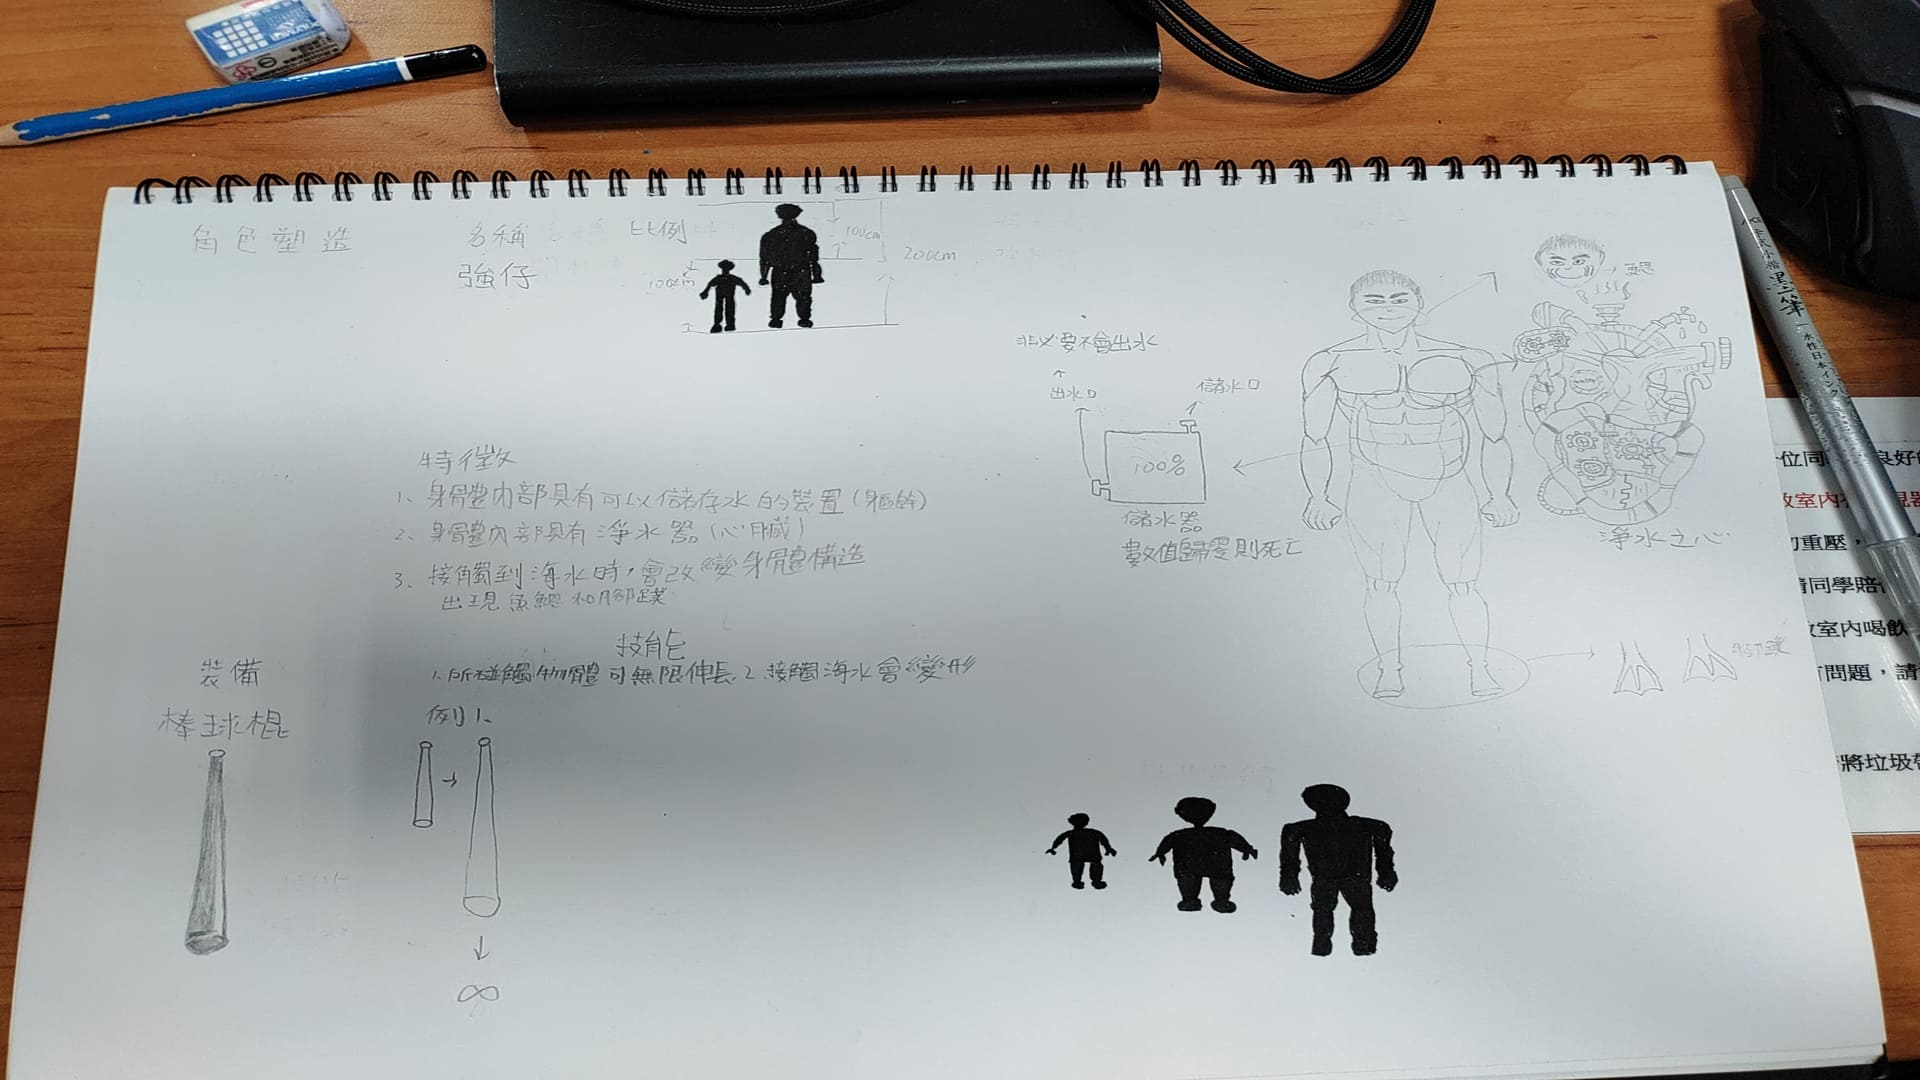 角色塑造
名稱
強仔
比例
100cm
200cm
100cm
特徵
1. 身體內部具有可以儲存水的裝置(軀幹)
2. 身體內部具有淨水器(心臟)
3. 接觸到海水時，會改變身體構造
出現魚鰓和腳蹼
技能
1. 所碰觸物體可無限伸長. 2. 接觸海水會變形
例1.
∞
裝備
棒球棍
非必要不會出水
出水口
儲水口
100%
儲水器
數值歸零則死亡
鰓
淨水之心
腳蹼
水性日本インク
位同
良好的
教室內
重壓，
同學賠
室內喝飲
問題，請
將垃圾